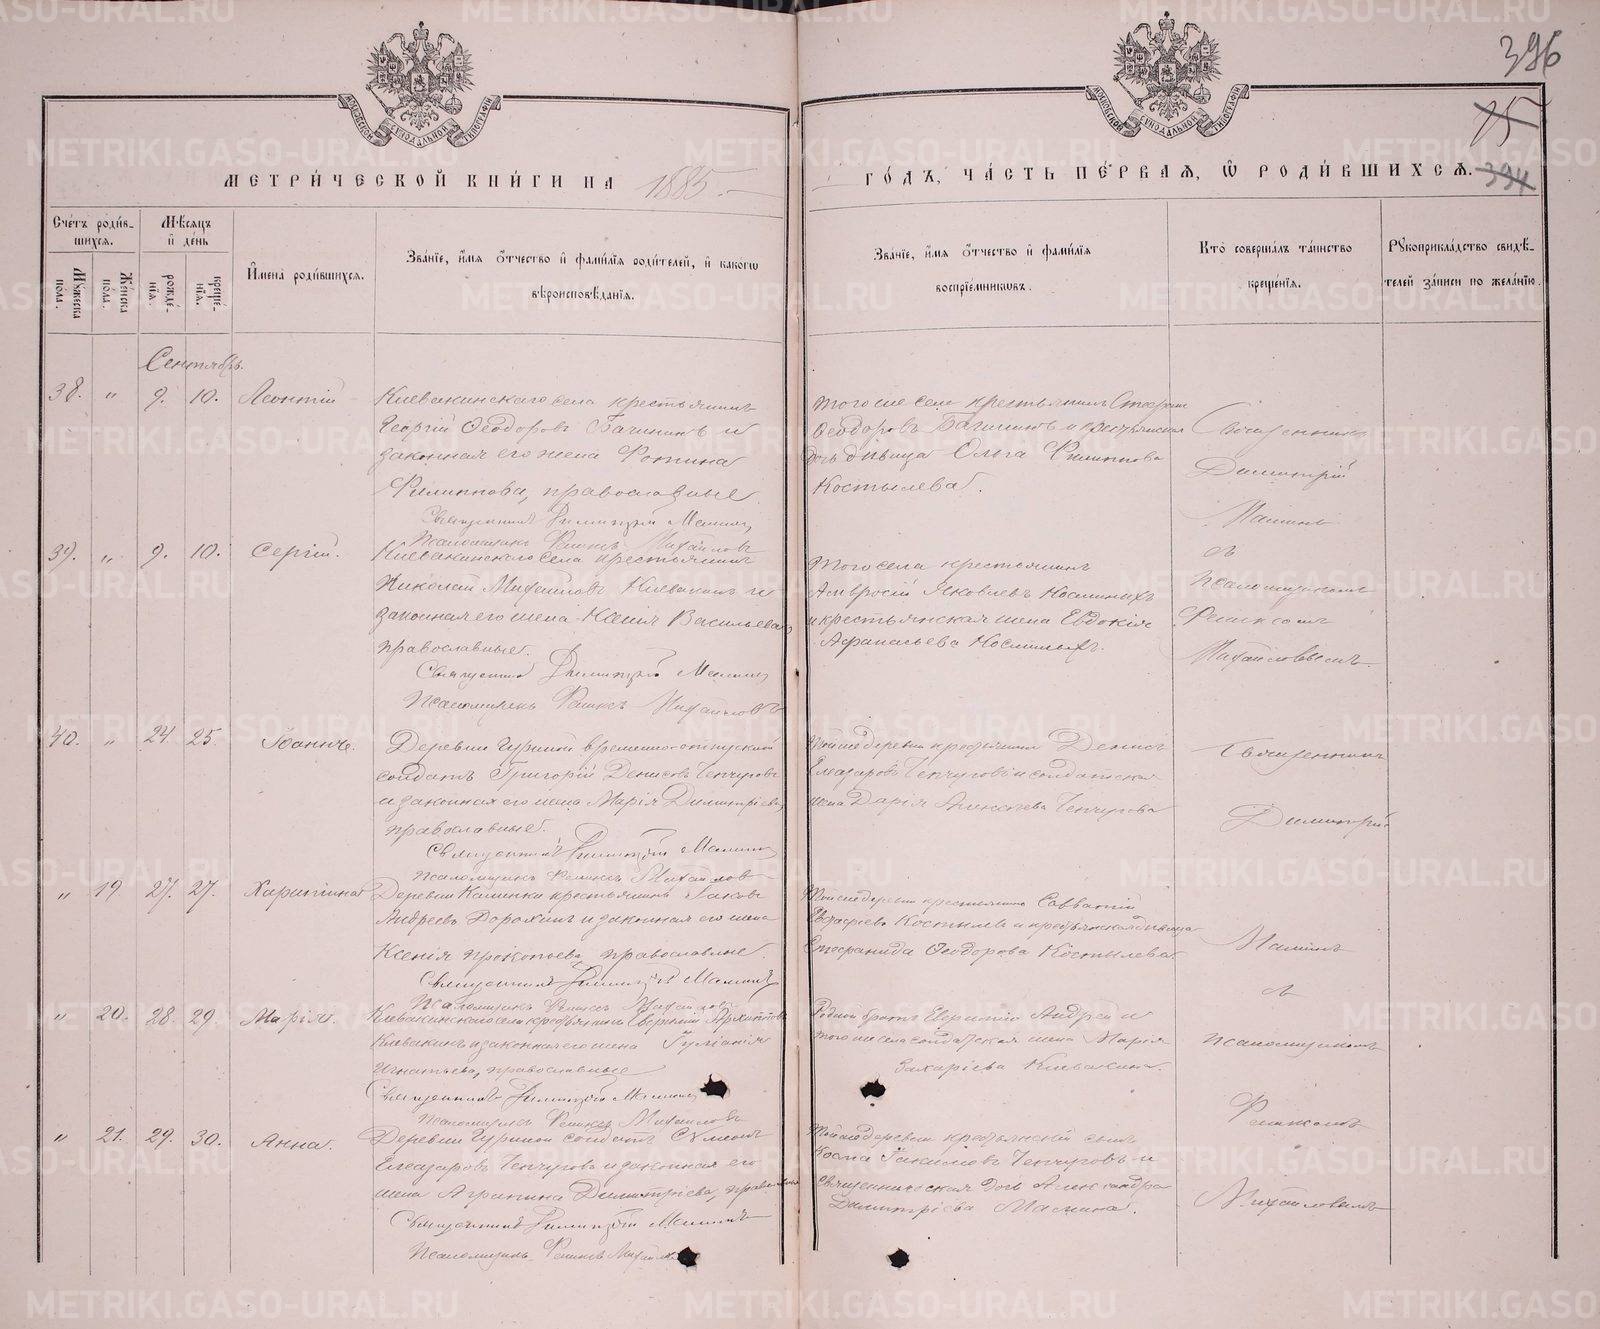 396
75
394
МЕТРИ́ЧЕСКОЙ КНИ́ГИ НА 1885 ГО́ДЪ, ЧА́СТЬ ПЕ́РВАЯ, Ѡ РОДИ́ВШИХСЯ.
Сче́тъ роди́в-
шихся.
Му́жеска по́ла.
Же́нска по́ла.
Мѣ́сяцъ и де́нь
рожде́-
нїя.
креще́-
нїя.
И́мена роди́вшихся.
Зва́нїе, и́мя ѻ́тчество и фами́лїя роди́телей, и како́гѡ
вѣроисповѣ́данїя.
Зва́нїе, и́мя ѻ́тчество и фами́лїя
воспрїе́мниковъ.
Кто̀ соверша́лъ та́инство
креще́нїя.
Рукоприкла́дство свидѣ́-
телей за́писи по жела́нїю.
Сентябрь.
38. " 9. 10. Леонтій
Клевакинскаго села крестьянинъ
Георгій Ѳеодоровъ Бачининъ и
законная его жена Фотина
Филиппова, православные.
Священникъ Димитрій Маминъ
Псаломщикъ Феликсъ Михайловъ
того же села крестьянинъ
Ѳеодоровъ Бачининъ и крестьянская
дочь дѣвица Ольга Филиппова
Костылева.
Священникъ
Димитрій
Маминъ
съ
псаломщикомъ
Феликсомъ
Михайловымъ.
39. " 9. 10. Сергій.
Клевакинскаго села крестьянинъ
Николай Михайловъ Клевакинъ и
законная его жена Ксенія Васильева,
православные.
Священникъ Димитрій Маминъ
Псаломщикъ Феликсъ Михайловъ
того села крестьянинъ
Амвросій Яковлевъ Носминыхъ
и крестьянская жена Евдокія
Афанасьева
40. " 24. 25. Іоаннъ.
Деревни временно-отпускной
солдатъ Григорій Денисовъ Ченчуговъ
и законная его жена Марія Димитріева,
православные.
Священникъ Димитрій Маминъ
Псаломщикъ Феликсъ Михайловъ
Той же деревни крестьянинъ Денисъ
Елеазаровъ Ченчуговъ и солдатская
жена Дарія Алексѣева Ченчугова
Священникъ
Димитрій
Маминъ
съ
псаломщикомъ
Феликсомъ
Михайловымъ
" 19. 27. 27. Харитина
Деревни Калинки крестьянинъ Іаковъ
Андреевъ Дорохинъ и законная его жена
Ксенія Прокопьева, православные.
Священникъ Димитрій Маминъ
Псаломщикъ Феликсъ Михайловъ
Той же деревни крестьянинъ Савватій
Костылевъ и крестьянская дѣвица
Епистранида Ѳеодорова Костылева.
" 20. 28. 29. Марія.
Клевакинскаго села крестьянинъ Евгеній Архиповъ
Клевакинъ и законная его жена Іуліанія
Игнатьева, православные
Священникъ Димитрій Маминъ
Псаломщикъ Феликсъ Михайловъ
Родной братъ Андрей и
того же села солдатская жена Марія
Захаріева Клевакина.
" 21. 29. 30. Анна.
Деревни солдатъ Симеонъ
Елеазаровъ Ченчуговъ и законная его
жена Агрипина Димитріева,
Священникъ Димитрій Маминъ
Псаломщикъ Феликсъ
Той же деревни крестьянскій сынъ
Косма Ченчуговъ и
священническая дочь Александра
Димитріева Мамина.